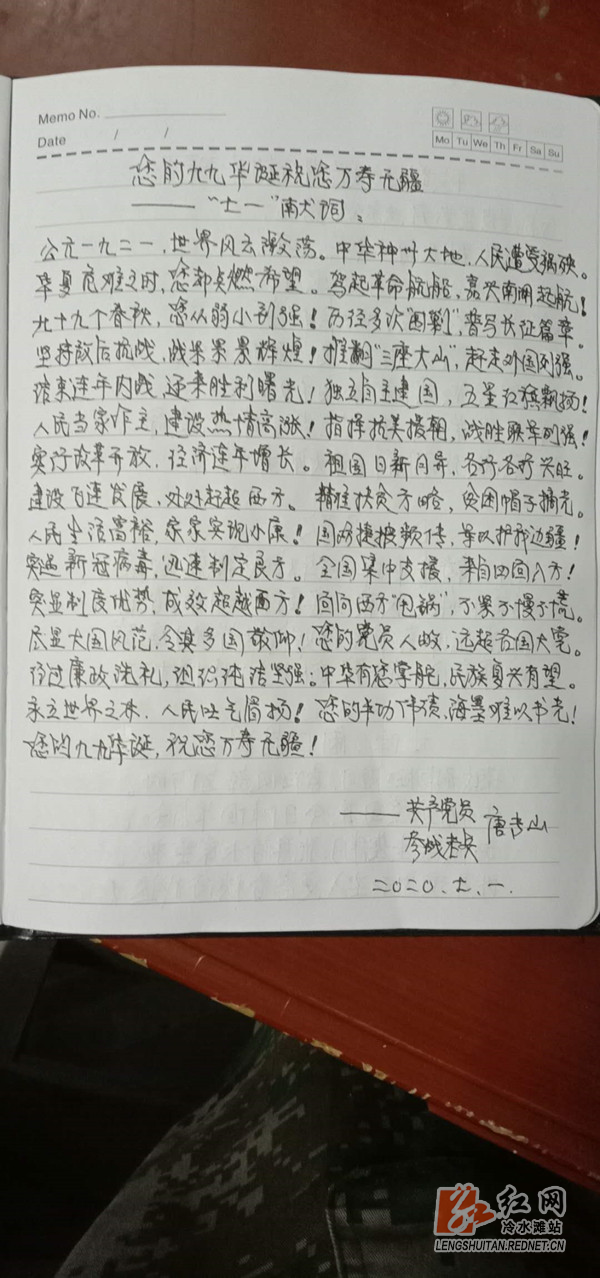 Memo No.
Date / /
Mo Tu We Th Fr Sa Su
您的九九华诞祝您万寿无疆
——“七一”献词。
公元一九二一，世界风云激荡。中华神州大地，人民遭受祸殃。
华夏危难之时，您却点燃希望。驾起革命航船，嘉兴南湖起航！
九十九个春秋，您从弱小到强！历经多次“围剿”，普写长征篇章。
坚持敌后抗战，战果累累辉煌！推翻“三座大山”，赶走外国列强。
结束连年内战，迎来胜利曙光！独立自主建国，五星红旗飘扬！
人民当家作主，建设热情高涨！指挥抗美援朝，战胜联军列强！
实行改革开放，经济连年增长。祖国日新月异，各行各行兴旺。
建设飞速发展，处处赶超西方。精准扶贫方略，贫困帽子摘光。
人民生活富裕，家家实现小康！国防捷报频传，军队护我边疆！
突遇新冠病毒，迅速制定良方。全国集中支援，来自四面八方！
突显制度优势，成效超越西方！面向西方“甩锅”，不累不慢不慌。
尽显大国风范，令其多国敬仰！您的党员人数，远超各国大党。
经过廉政洗礼，组织纯洁坚强；中华有您掌舵，民族复兴有望。
永立世界之林，人民吐气眉扬！您的丰功伟绩，海墨难以书光！
您的九九华诞，祝您万寿无疆！
——共产党员
参战老兵 唐吉山
二〇二〇.七.一.
红网
冷水滩站
LENGSHUITAN.REDNET.CN